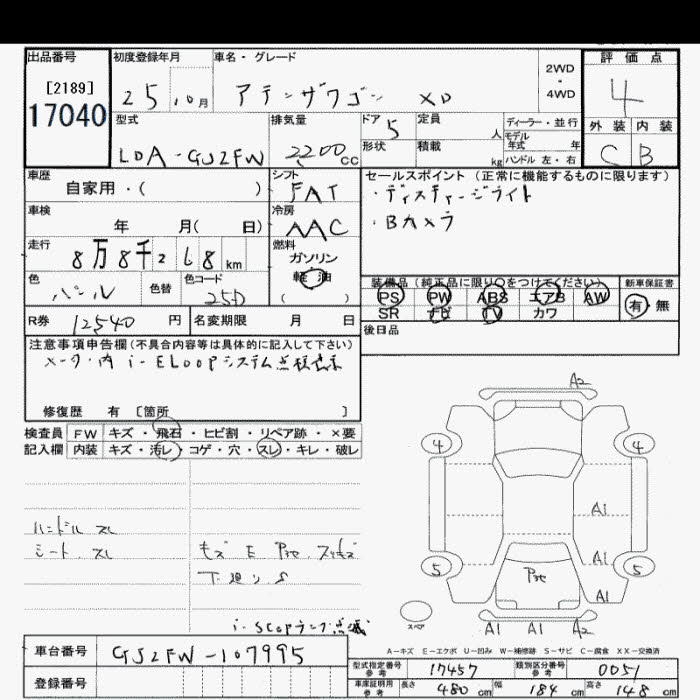 出品番号
[2189]
17040
初度登録年月
25年10月
車名・グレード
アテンザワゴン XD
2WD
・
4WD
評価点
4
外装 内装
C B
型式
LDA-GJ2FW
排気量
2200cc
ドア 5
定員 人
ディーラー・並行
モデル年式 年
形状
積載 kg
ハンドル 左・右
車歴
自家用・( )
シフト
FAT
セールスポイント(正常に機能するものに限ります)
・ディスチャージライト
・Bカメラ
車検
年 月( 日)
冷房
AAC
走行
8万8千268km
燃料
ガソリン
軽油
( )
色
パール
色替
色コード
25D
装備品(純正品に限り○をつけてください)
PS PW ABS エアB AW
SR ナビ TV カワ
新車保証書
有 無
R券 12540円
名変期限 月 日
後日品
注意事項申告欄(不具合内容等は具体的に記入して下さい)
メーター内 i-ELOOPシステム点検表示
修復歴 有 [箇所 ]
検査員 FW キズ・飛石・ヒビ割・リペア跡・×要
記入欄 内装 キズ・汚レ・コゲ・穴・スレ・キレ・破レ
ハンドル スレ
シート スレ
キズ E
下廻り S
i-stopランプ点滅
A2
4 4
A1
A1
5 5
A1
A1 A1 A2
スペア
A-キズ E-エクボ U-凹み W-補修跡 S-サビ C-腐食 XX-交換済
車台番号 GJ2FW-107995
登録番号
型式指定番号 参考 17457
類別区分番号 参考 0051
車庫証明用 参考 長さ 480cm 幅 184cm 高さ 148cm